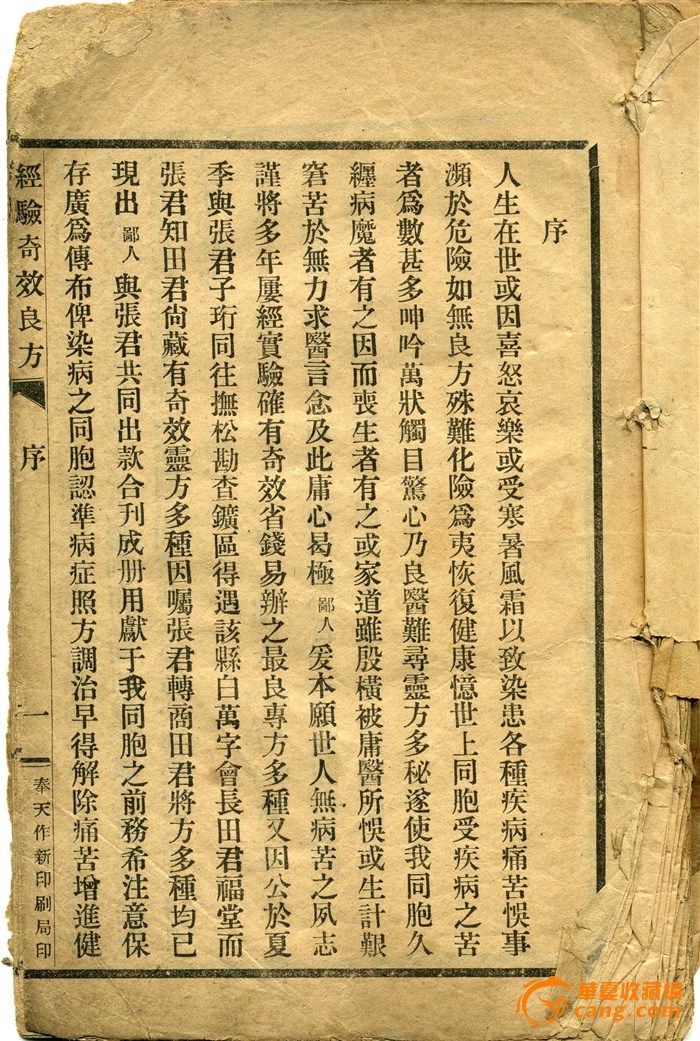 序
人生在世或因喜怒哀樂或受寒暑風霜以致染患各種疾病痛苦悞事
瀕於危險如無良方殊難化險爲夷恢復健康憶世上同胞受疾病之苦
者爲數甚多呻吟萬狀觸目驚心乃良醫難尋靈方多秘遂使我同胞久
纒病魔者有之因而喪生者有之或家道雖殷橫被庸醫所悞或生計艱
窘苦於無力求醫言念及此庸心曷極鄙人爰本願世人無病苦之夙志
謹將多年屢經實驗確有奇效省錢易辦之最良專方多種又因公於夏
季與張君子珩同往撫松勘查鑛區得遇該縣白萬字會長田君福堂而
張君知田君尙藏有奇效靈方多種因囑張君轉商田君將方多種均已
現出鄙人與張君共同出款合刊成册用獻于我同胞之前務希注意保
存廣爲傳布俾染病之同胞認準病症照方調治早得解除痛苦增進健
經驗奇效良方
序
一
奉天作新印刷局印
華夏收藏網
cang.com